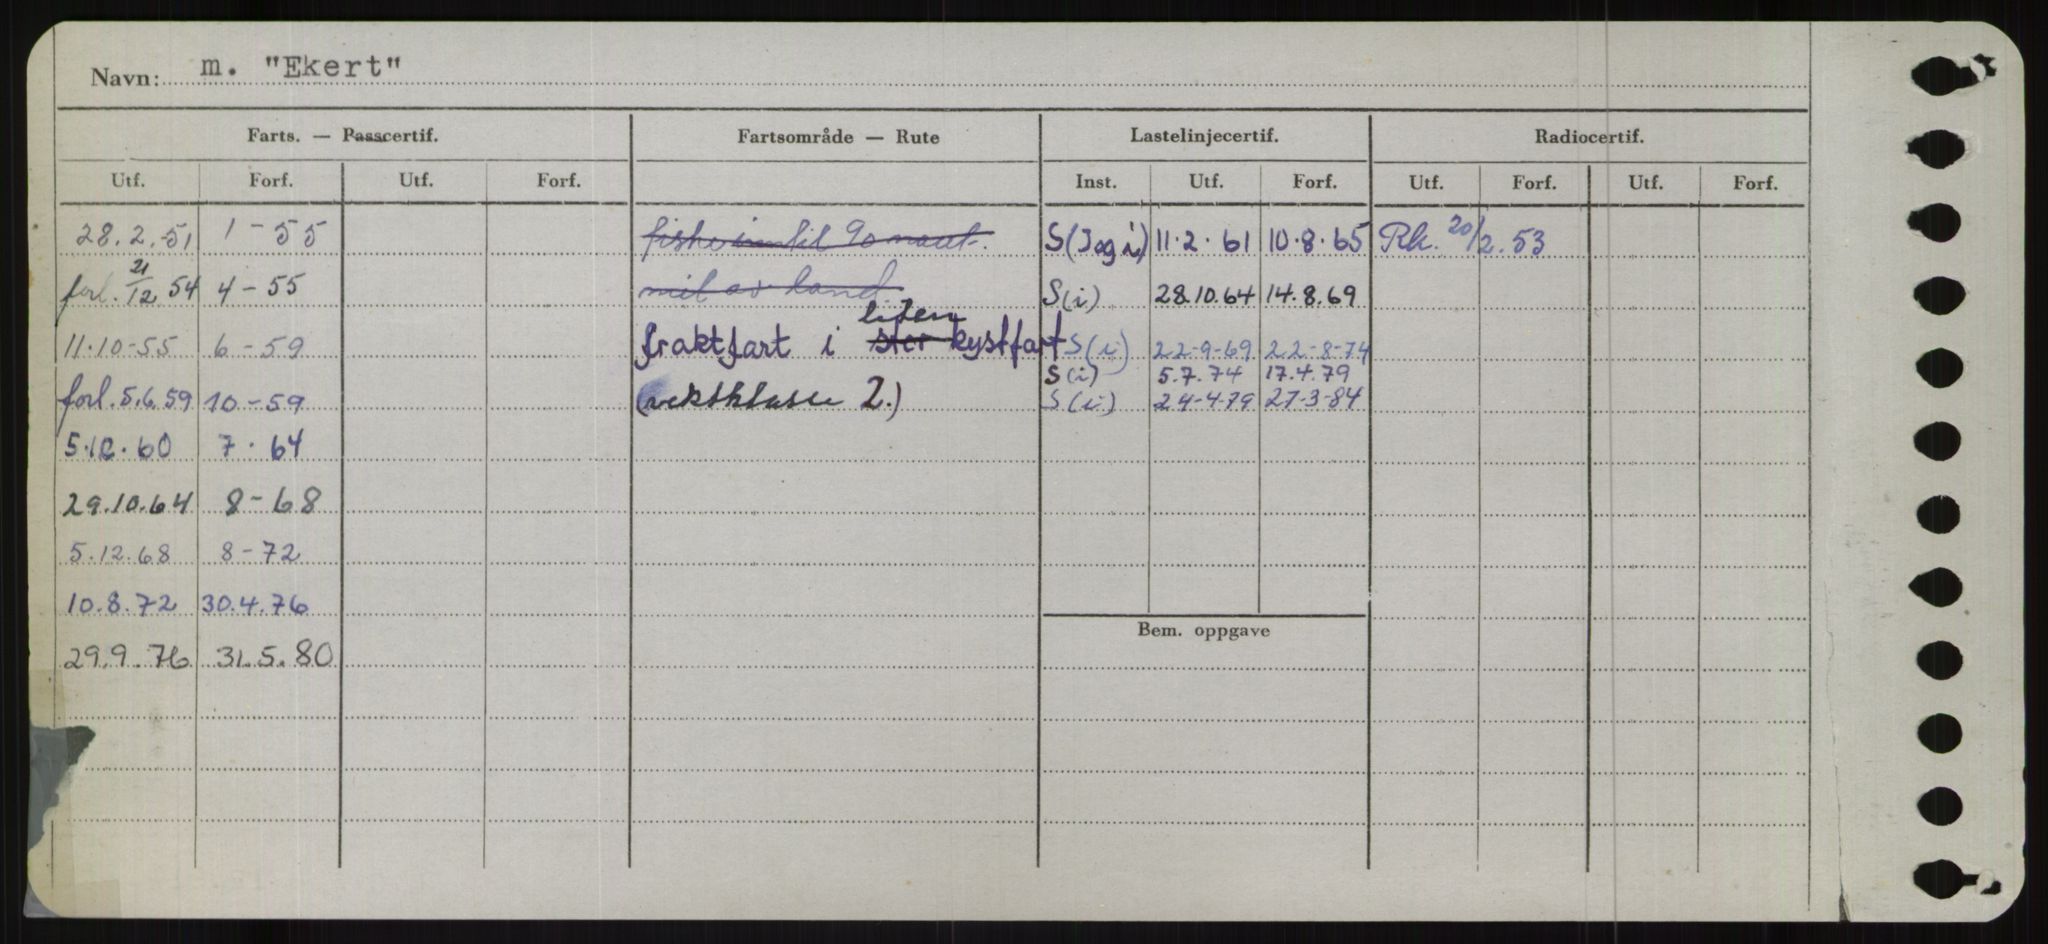 Navn: m. "Ekert"
Farts. — Passcertif. Fartsområde — Rute Lastelinjecertif. Radiocertif.
Utf. Forf. Utf. Forf. Inst. Utf. Forf. Utf. Forf. Utf. Forf.
28.2.51 1-55 fiske inntil 90 naut. S(Jog i) 11.2.61 10.8.65 Rk. 20/2.53
forl. 21/12 54 4-55 mil av land S(i) 28.10.64 14.8.69
liten
11.10-55 6-59 fraktfart i stor kystfart S(i) 22-9-69 22-8-74
S(i) 5.7.74 17.4.79
forl. 5.6.59 10-59 (vektklasse 2.) S(i) 24-4-79 27-3-84
60 7.64
29.10.64 8-68
5.12.68 8-72
10.8.72 30.4.76
Bem. oppgave
29.9.76 31.5.80